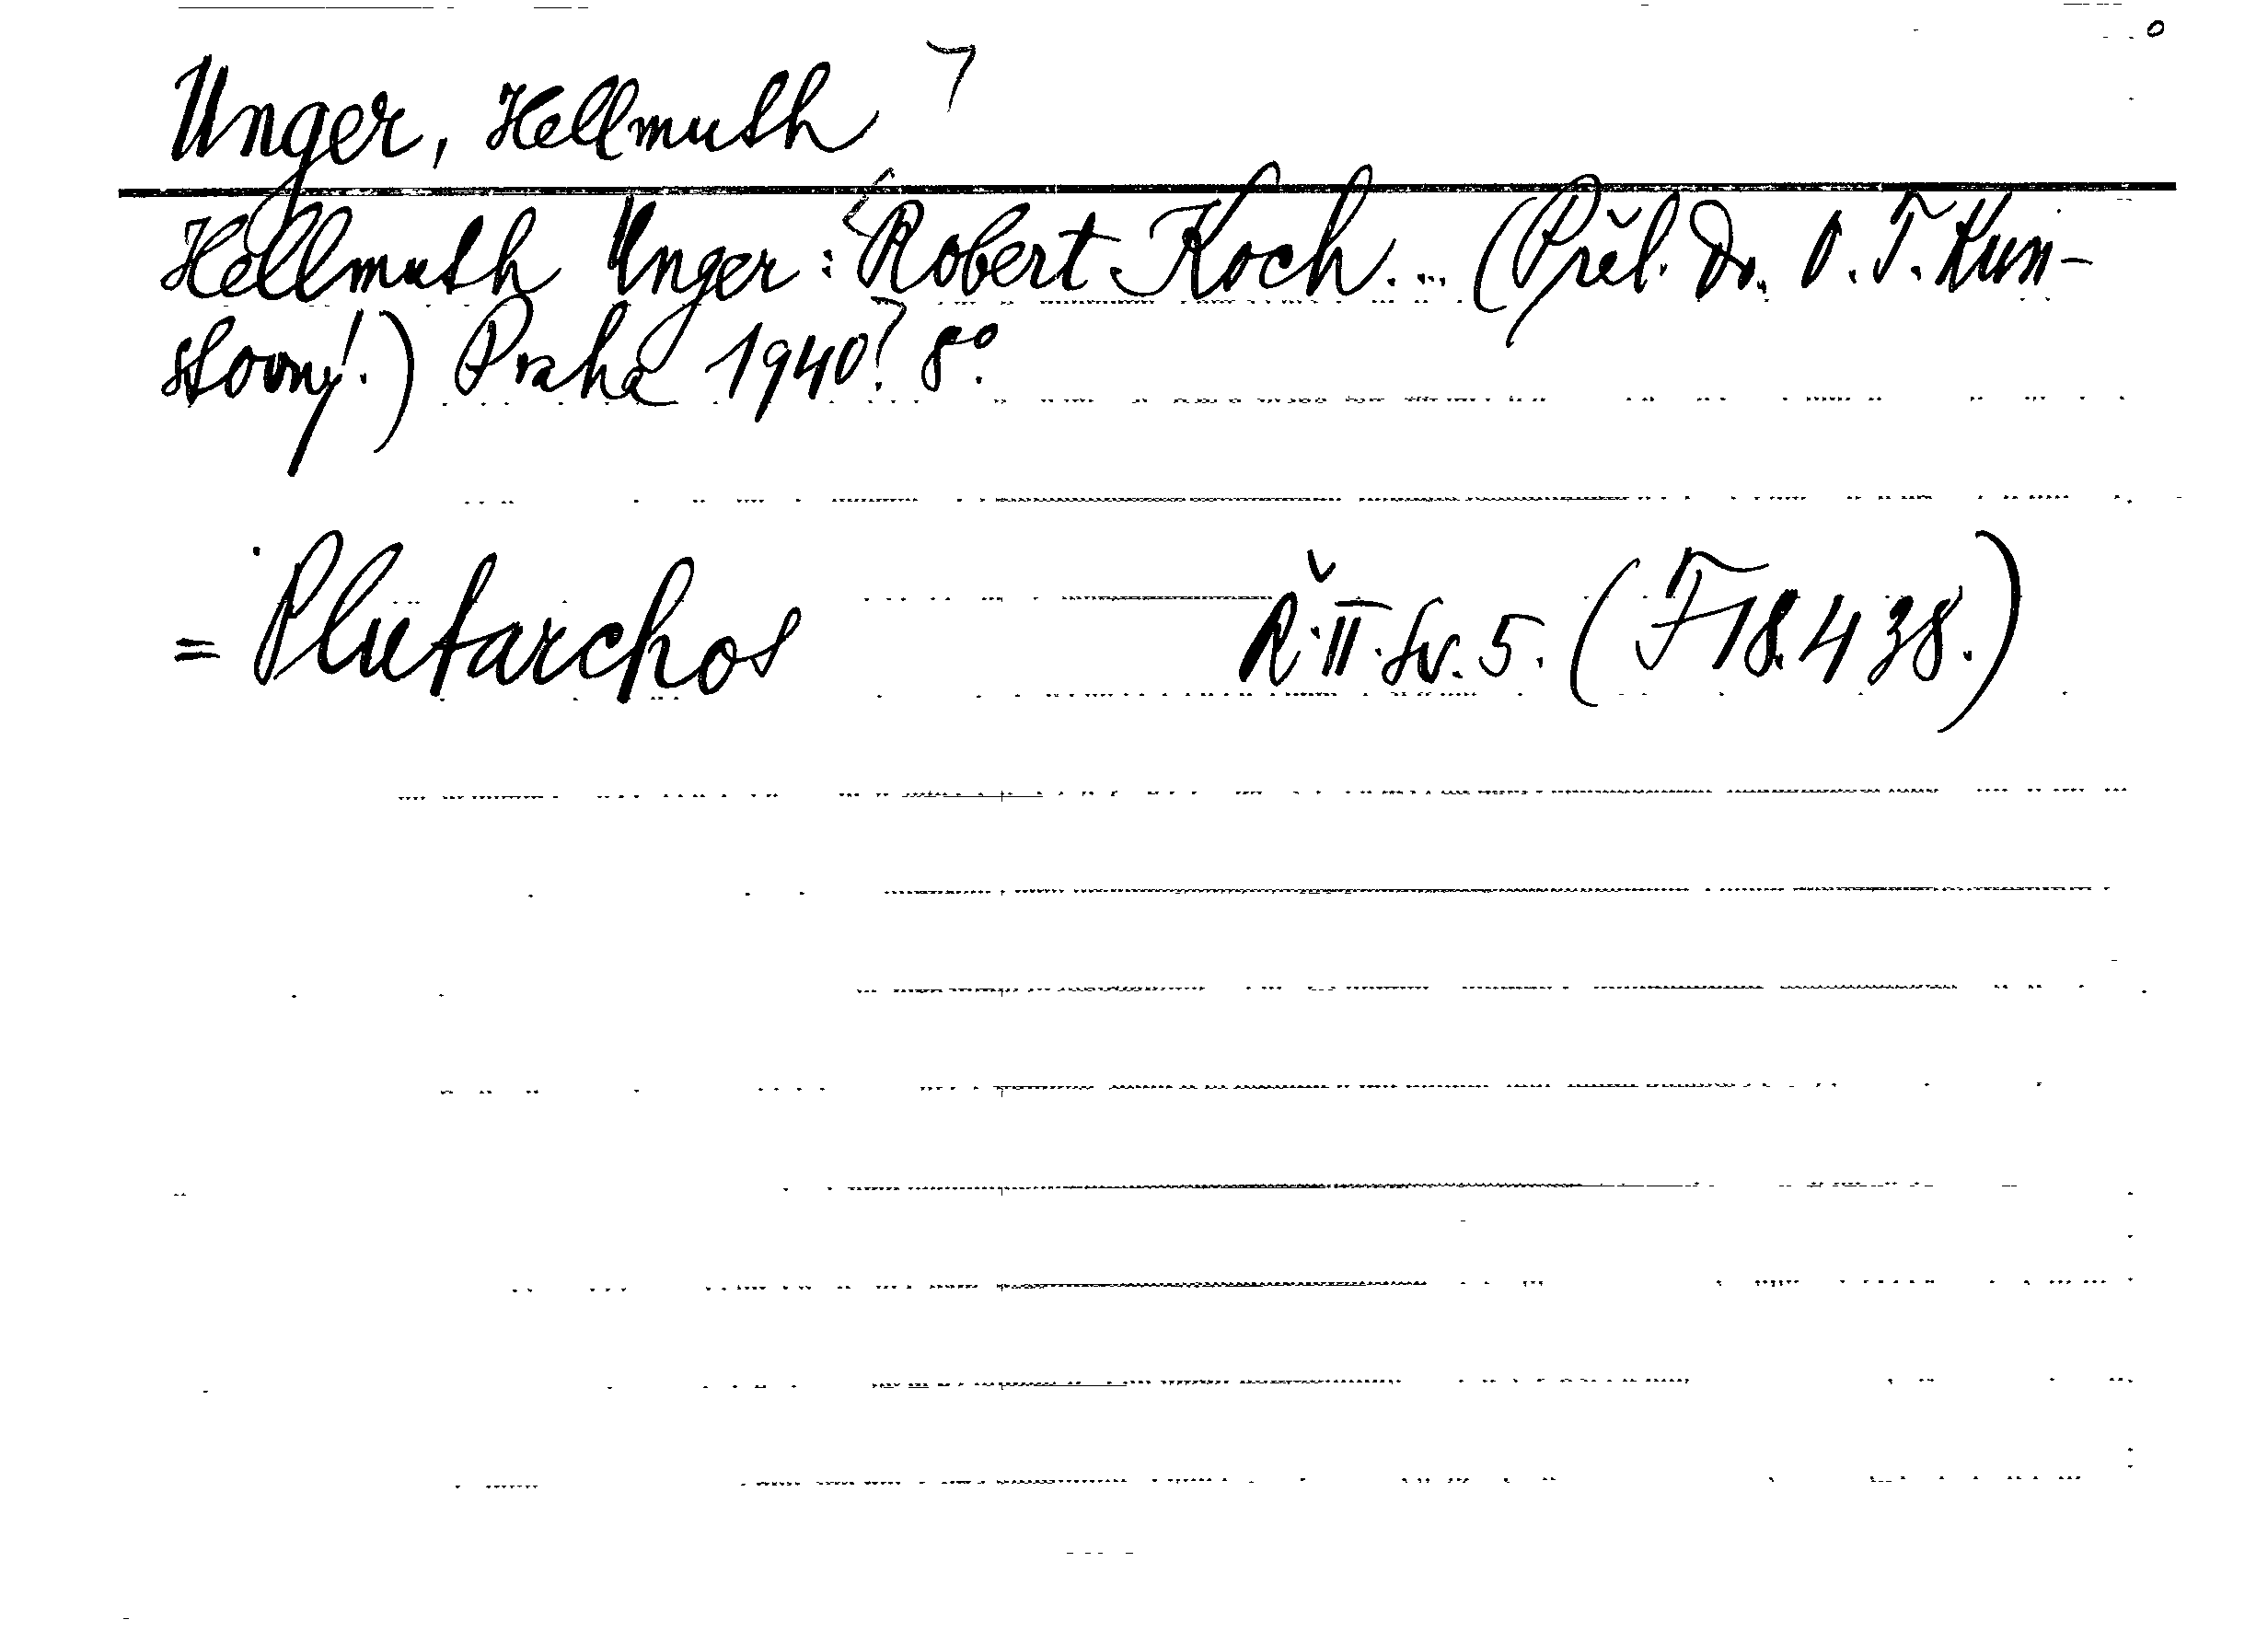 Unger, Hellmuth
Hellmuth Unger: Robert Koch... (Přel. Dr. O. F. Kun-
stovný.) Praha 1940? 8°
= Plutarchos Ř. II. sv. 5. (F 18.438.)